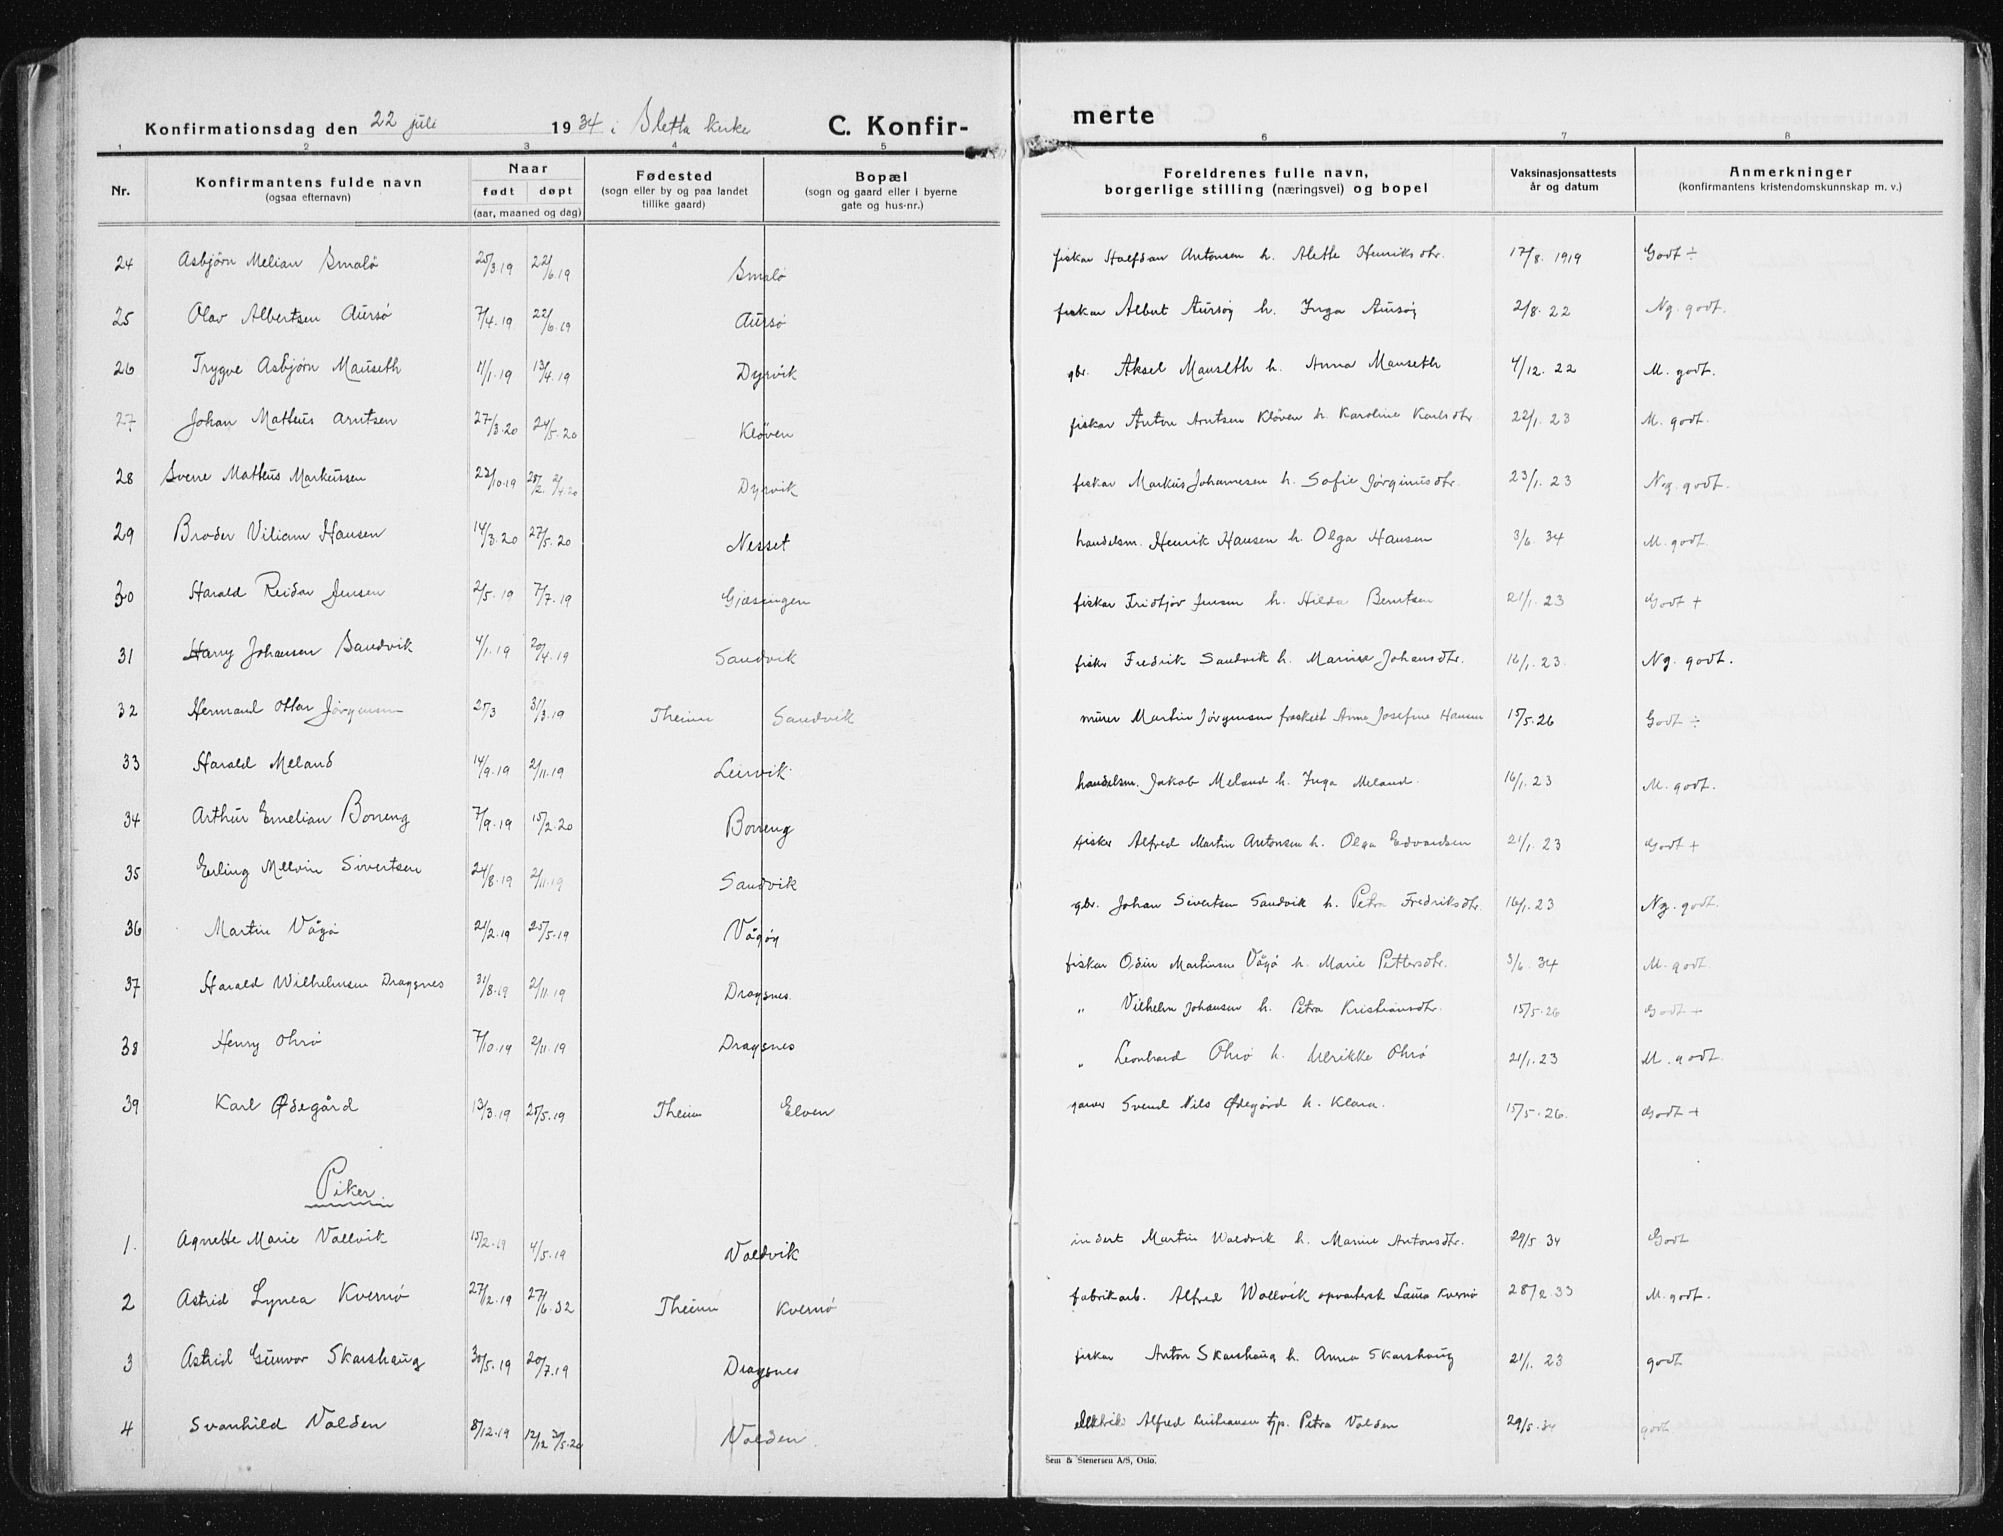 Konfirmationsdag den 22 juli 1934 i Sletta kirke C. Konfir-
merte
1 2 3 4 5
6 7 8
Nr. Konfirmantens fulde navn (ogsaa efternavn) Naar født døpt (aar, maaned og dag) Fødested (sogn eller by og paa landet tillike gaard) Bopæl (sogn og gaard eller i byerne gate og hus-nr.)
Foreldrenes fulle navn, borgerlige stilling (næringsvei) og bopel Vaksinasjonsattests år og datum Anmerkninger (konfirmantens kristendomskunnskap m. v.)
24 Asbjörn Melian Smalö 25/3.19 22/6.19 Smalö fiskar Halfdan Antonsen h. Alette Henriksdtr. 17/8. 1919 Godt ÷
25 Olav Albertsen Aursö 7/4.19 22/6.19 Aursö fiskar Albert Aursöy h. Inga Aursöy 2/8. 22 Ng. godt.
26 Trygve Asbjörn Mauseth 11/1.19 13/4.19 Dyrvik gbr. Aksel Mauseth h. Anna Mauseth 4/12. 22 M. godt.
27 Johan Matteus Arntsen 27/3.20 24/5.20 Kløven fiskar Anton Arntsen Kløven h. Karoline Karlsdtr. 22/1. 23 M. godt.
28 Sverre Matteus Markussen 22/10.19 Dyrvik fiskar Markus Johannesen h. Sofie Jørginusdtr. 23/1. 23 Ng. godt.
29 Broder Viliam Hansen 14/3.20 27/5.20 Nesset handelsm. Henrik Hansen h. Olga Hansen 3/6. 34 M. godt.
30 Harald Reidar Jensen 2/5.19 7/7.19 Gjæsingen fiskar Fridtjov Jensen h. Hilda Berntsen 21/1. 23 Godt +
31 Harry Johansen Sandvik 4/1.19 20/4.19 Sandvik fisker Fredrik Sandvik h. Marie Johansdtr. 16/1. 23. Ng. godt.
32 Hermand Ottar Jørgensen 25/3 31/3.19 Theim Sandvik murer Martin Jørgensen fraskilt Anna Josefine Hansen 15/5.26 Godt ÷
33 Harald Meland 14/9.19 2/11.19 Leirvik handelsm. Jakob Meland h. Inga Meland. 16/1. 23 M. godt.
34 Arthur Emelian Borreng 7/9.19 15/2.20 Borreng fisker Alfred Martin Antonsen h. Olga Edvardsen 21/1. 23 Godt +
35 Erling Melvin Sivertsen 24/8.19 2/11.19 Sandvik gbr. Johan Sivertsen Sandvik h. Petra Fredriksdtr. 16/1. 23 Ng. godt.
36 Martin Vågö 21/2.19 25/5.19 Vågöy fiskar Odin Martinsen Vågö h. Marie Pettersdtr. 3/6. 34 M. godt
37 Harald Wilhelmsen Dragsnes 31/8.19 2/11.19 Dragsnes. " Vilhelm Johansen h. Petra Kristiansdtr. 15/5.26 Godt +
38 Henry Ohrö 7/10.19 2/11.19 Dragsnes " Leonhard Ohrö h. Ulrikke Ohrö 21/1. 23 M. godt.
39 Karl Ødegård 13/3.19 25/5.19 Theim Elven Svend Nils Ødegård h. Klara. 15/5. 26. Godt +
Piker
1. Agnette Marie Vallvik 15/2.19 4/5.19 Valdvik Martin Waldvik h. Marine Antonsdtr. 29/5 34 Godt
2 Astrid Lynea Kvernö 27/2.19 27/6.32 Theim Kvernö fabrikarb. Alfred Wallvik opvartersk Laura Kvernö 28/2.33 M. godt.
3 Astrid Gunvor Skarshaug 30/5.19 20/7.19 Dragsnes fiskar Anton Skarshaug h. Anna Skarshaug 21/1. 23 godt
4 Svanhild Valden 8/12.19 Valden. Alfred tjp. Petra Valden 29/5.34 godt
Sem & Stenersen A/S, Oslo.